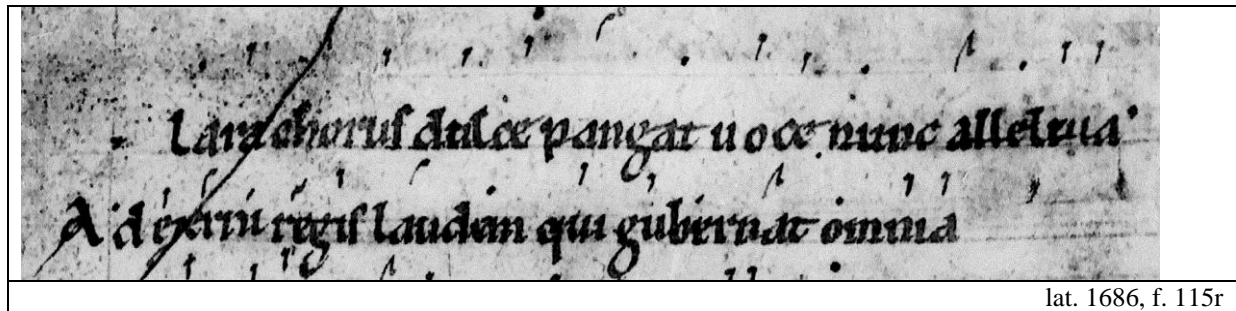 lara chorus dulce pangat uoce nunc alleluia
Ad eterni regis laudem qui gubernat omnia
lat. 1686, f. 115r